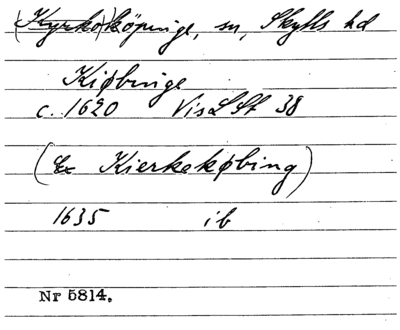 (Kyrko)köpinge, sn, Skytts hd
Kiøbinge
c. 1620 Vis L St 38
(Kierkekøbing)
1635 ib
Nr 5814.